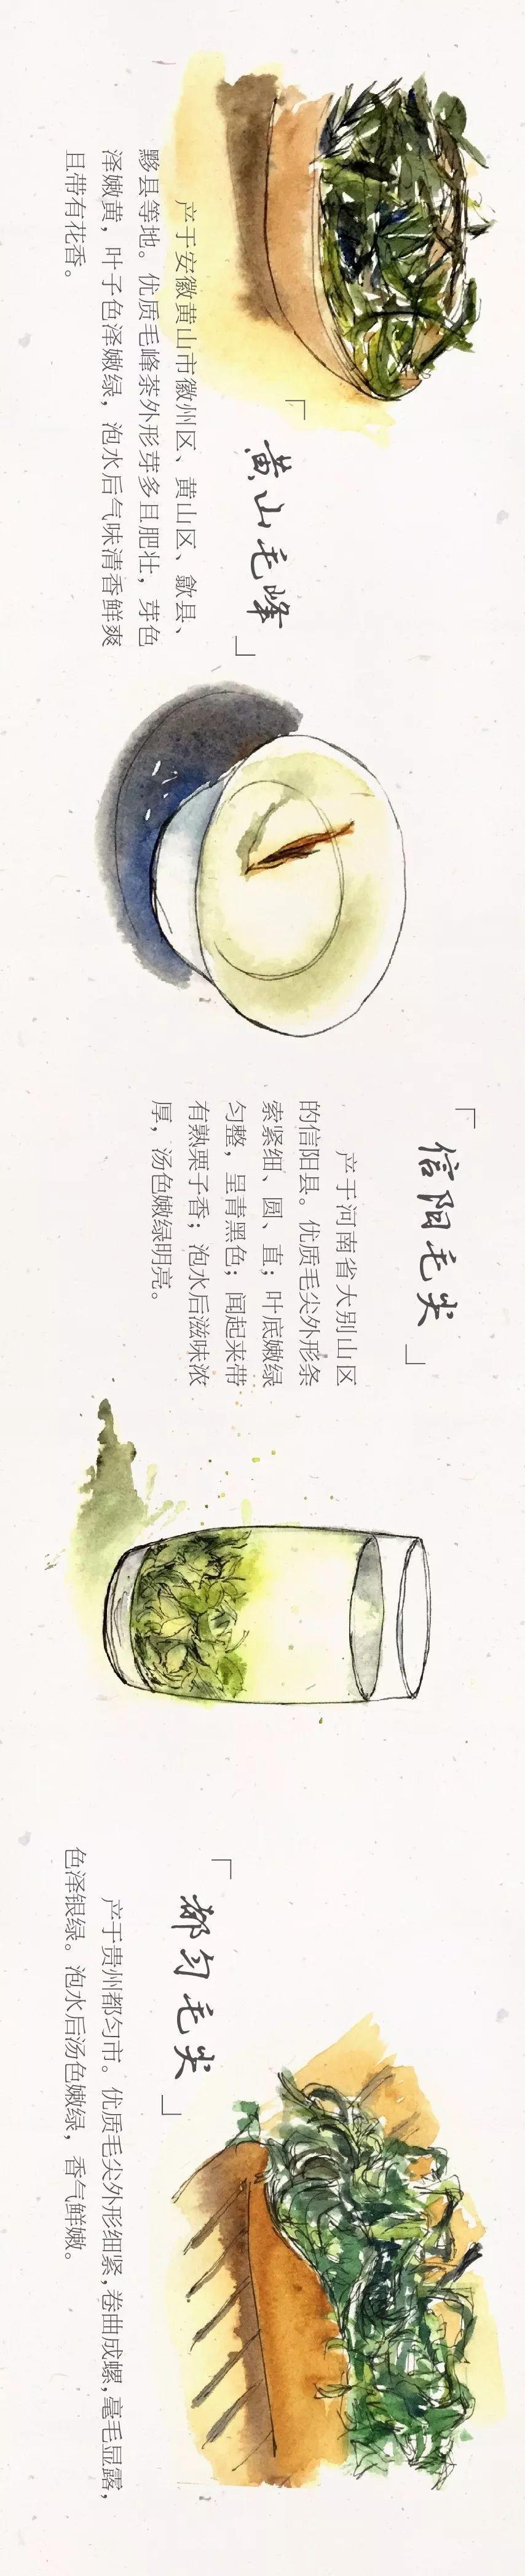 「黄山毛峰」
产于安徽黄山市徽州区、黄山区、歙县、
黟县等地。优质毛峰茶外形芽多且肥壮，芽色
泽嫩黄，叶子色泽嫩绿，泡水后气味清香鲜爽
且带有花香。
「信阳毛尖」
产于河南省大别山区
的信阳县。优质毛尖外形条
索紧细、圆、直；叶底嫩绿
匀整，呈青黑色；闻起来带
有熟栗子香；泡水后滋味浓
厚，汤色嫩绿明亮。
「都匀毛尖」
产于贵州都匀市。优质毛尖外形细紧,卷曲成螺,毫毛显露,
色泽银绿。泡水后汤色嫩绿，香气鲜嫩。